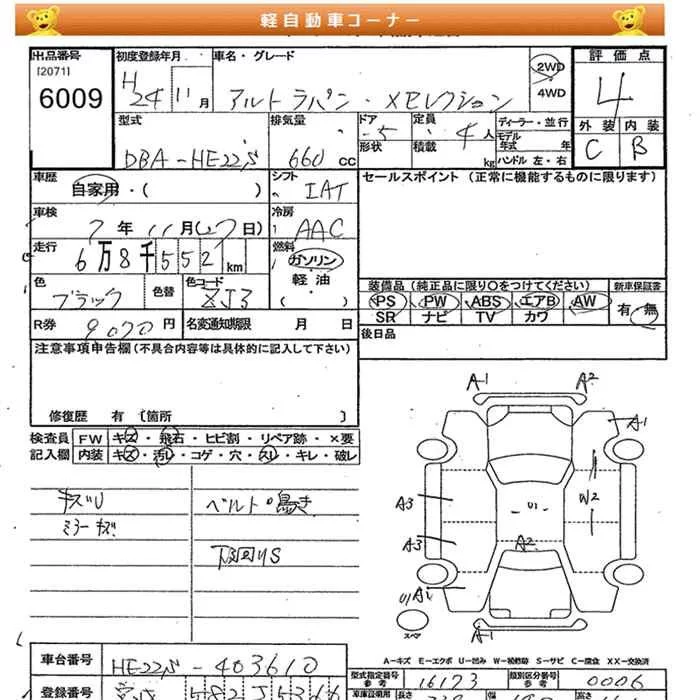 軽自動車コーナー
出品番号 初度登録年月 車名・グレード 評価点
[2071] 2WD
6009 H24 11月 アルトラパン・Xセレクション 4WD 4
型式 排気量 ドア -5 定員 4人 ディーラー・並行 外装 内装
DBA-HE22S 660cc 形状 積載 kg モデル年式 年 ハンドル 左・右 C B
車歴 自家用・( ) シフト IAT セールスポイント(正常に機能するものに限ります)
車検 7年11月(27日) 冷房 AAC
走行 6万8千552km 燃料 ガソリン
軽油
色 ブラック 色替 色コード XJ3 ( )
装備品(純正品に限り〇をつけてください) 新車保証書
PS PW ABS エアB AW 有・無
SR ナビ TV カワ
R券 9070円 名変通知期限 月 日 後日品
注意事項申告欄(不具合内容等は具体的に記入して下さい)
修復歴 有 〔箇所 〕
検査員 FW キズ・飛石・ヒビ割・リペア跡・×要
記入欄 内装 キズ・汚レ・コゲ・穴・スレ・キレ・破レ
キズU ベルト鳴き
ミラーキズ
下回りS
A1 A2
A1
A3 U1 W2
A3 A2
A1
U1
スペア
A1
A-キズ E-エクボ U-凹み W-補修跡 S-サビ C-腐食 XX-交換済
車台番号 HE22S-403610 型式指定番号 参考 16173 類別区分番号 参考 0006
登録番号 582 車庫証明用 長さ 幅 高さ